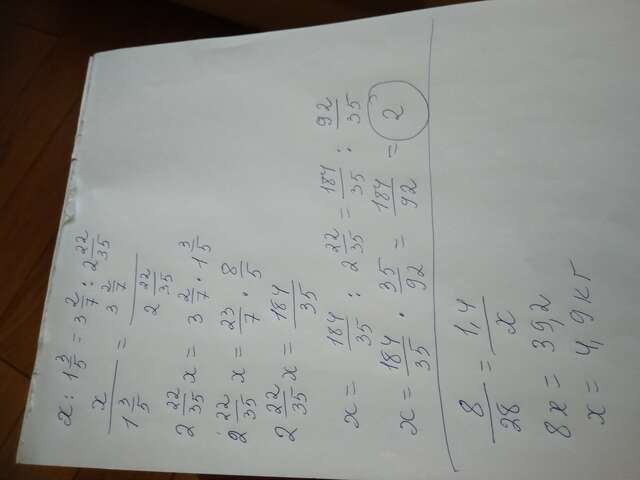 x : 1 3/5 = 3 2/7 : 2 22/35
x / 1 3/5 = 3 2/7 / 2 22/35
2 22/35 x = 3 2/7 · 1 3/5
2 22/35 x = 23/7 · 8/5
2 22/35 x = 184/35
x = 184/35 : 2 22/35 = 184/35 : 92/35
x = 184/35 · 35/92 = 184/92 = 2
8/28 = 1,4/x
8x = 39,2
x = 4,9 кг